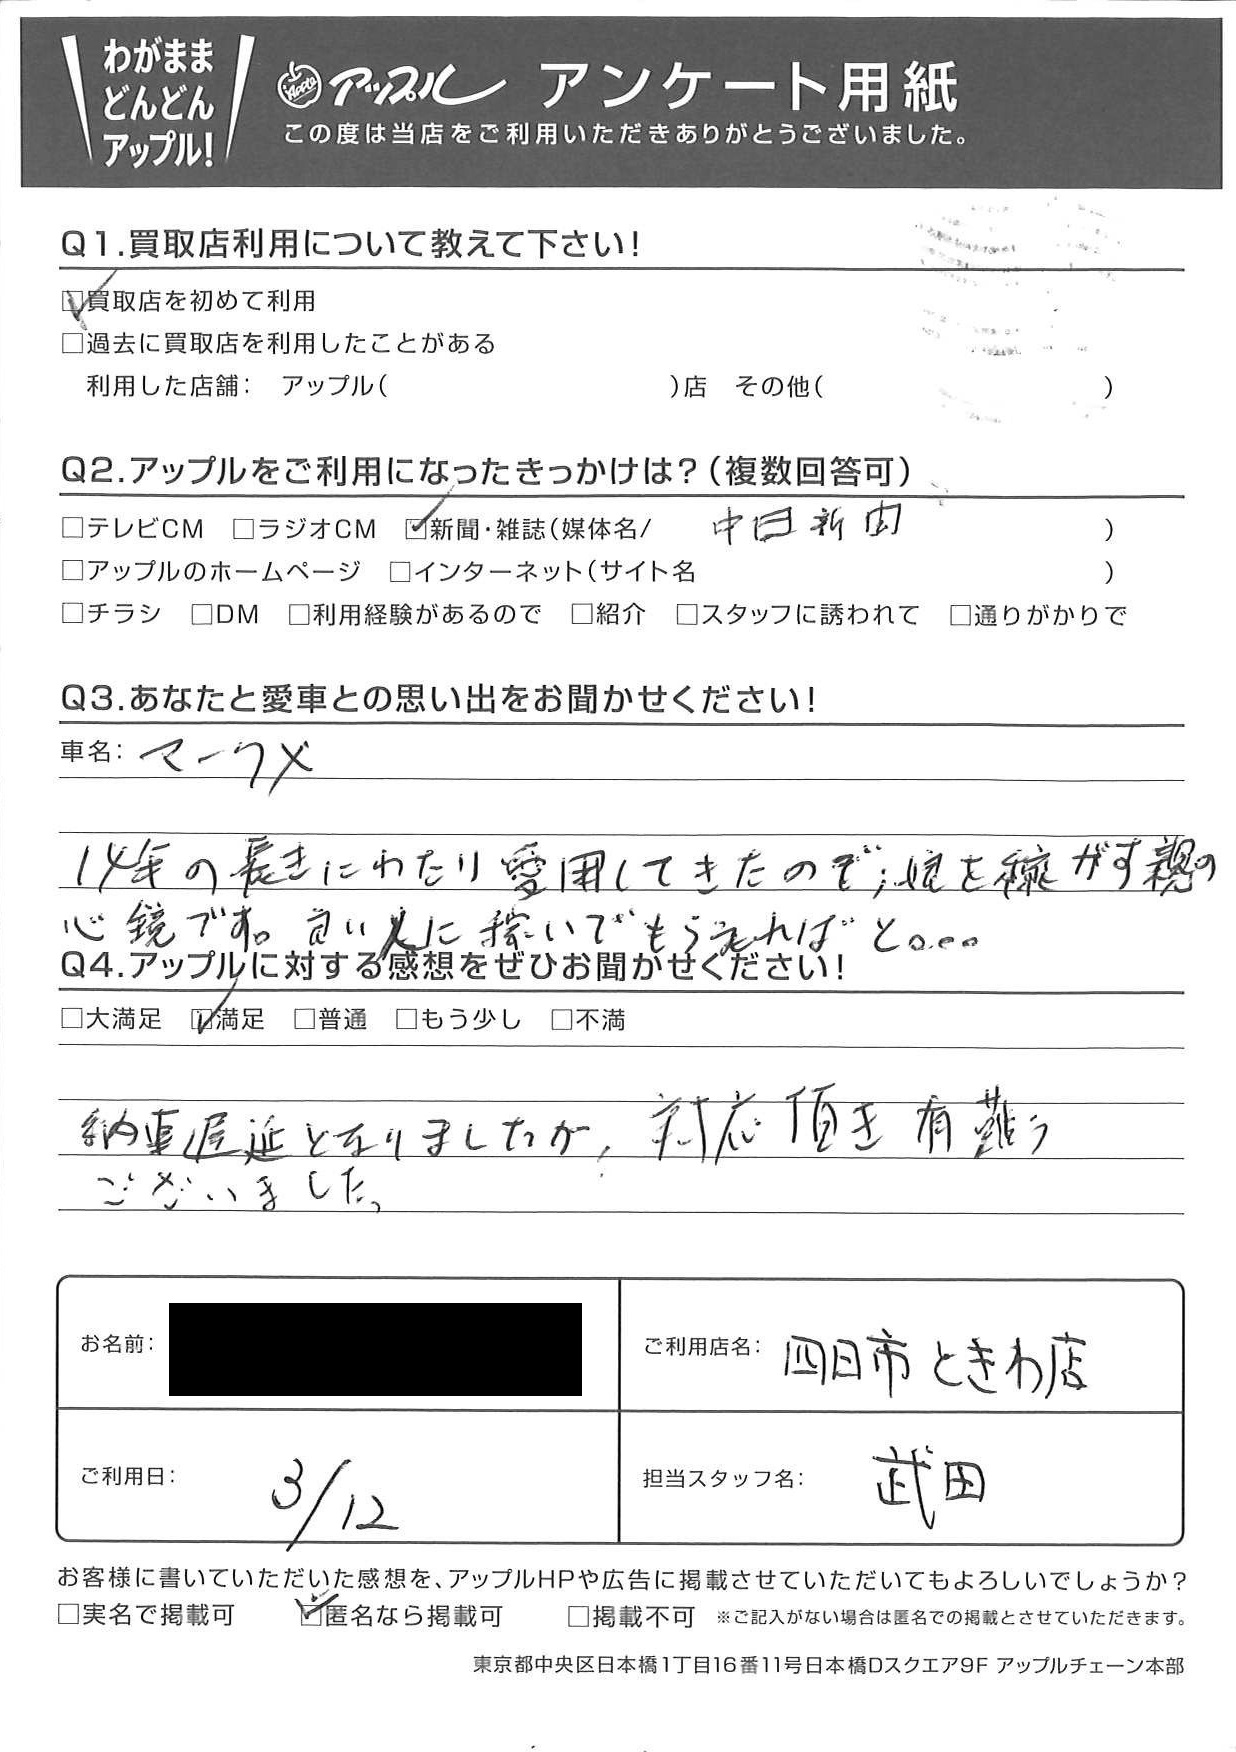 わがまま
どんどん
アップル!
Apple アップル アンケート用紙
この度は当店をご利用いただきありがとうございました。
Q1.買取店利用について教えて下さい!
☑買取店を初めて利用
□過去に買取店を利用したことがある
利用した店舗: アップル( )店 その他( )
Q2.アップルをご利用になったきっかけは?(複数回答可)
□テレビCM □ラジオCM ☑新聞・雑誌(媒体名/ 中日新聞 )
□アップルのホームページ □インターネット(サイト名 )
□チラシ □DM □利用経験があるので □紹介 □スタッフに誘われて □通りがかりで
Q3.あなたと愛車との思い出をお聞かせください!
車名: マークX
14年の長きにわたり愛用してきたので、娘を稼がす親の
心鏡です。良い人に稼いでもらえればと。。。
Q4.アップルに対する感想をぜひお聞かせください!
□大満足 ☑満足 □普通 □もう少し □不満
納車遅延となりましたが、対応頂き有難う
ございました。
お名前:
ご利用店名: 四日市ときわ店
ご利用日: 3/12
担当スタッフ名: 武田
お客様に書いていただいた感想を、アップルHPや広告に掲載させていただいてもよろしいでしょうか?
□実名で掲載可 ☑匿名なら掲載可 □掲載不可 ※ご記入がない場合は匿名での掲載とさせていただきます。
東京都中央区日本橋1丁目16番11号日本橋Dスクエア9F アップルチェーン本部